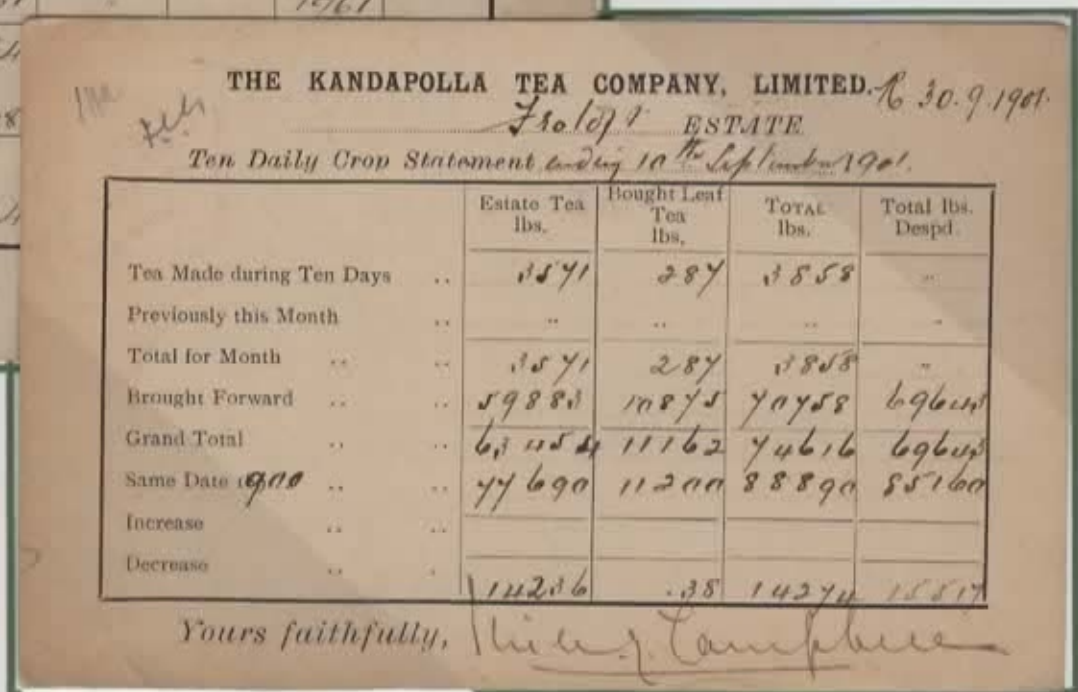 THE KANDAPOLLA TEA COMPANY, LIMITED. R 30.9.1901.
Frotoft ESTATE
Ten Daily Crop Statement ending 10th September 1901.
Estate Tea lbs. Bought Leaf Tea lbs, TOTAL lbs. Total lbs. Despd.
Tea Made during Ten Days .. 3571 287 3858 "
Previously this Month .. " " " "
Total for Month .. .. 3571 287 3858 "
Brought Forward .. .. 59883 10875 70758 69643
Grand Total .. .. 63454 11162 74616 69643
Same Date 1900 .. .. 77690 11200 88890 85160
Increase .. ..
Decrease .. . 14236 .38 14274 15517
Yours faithfully, Campbell